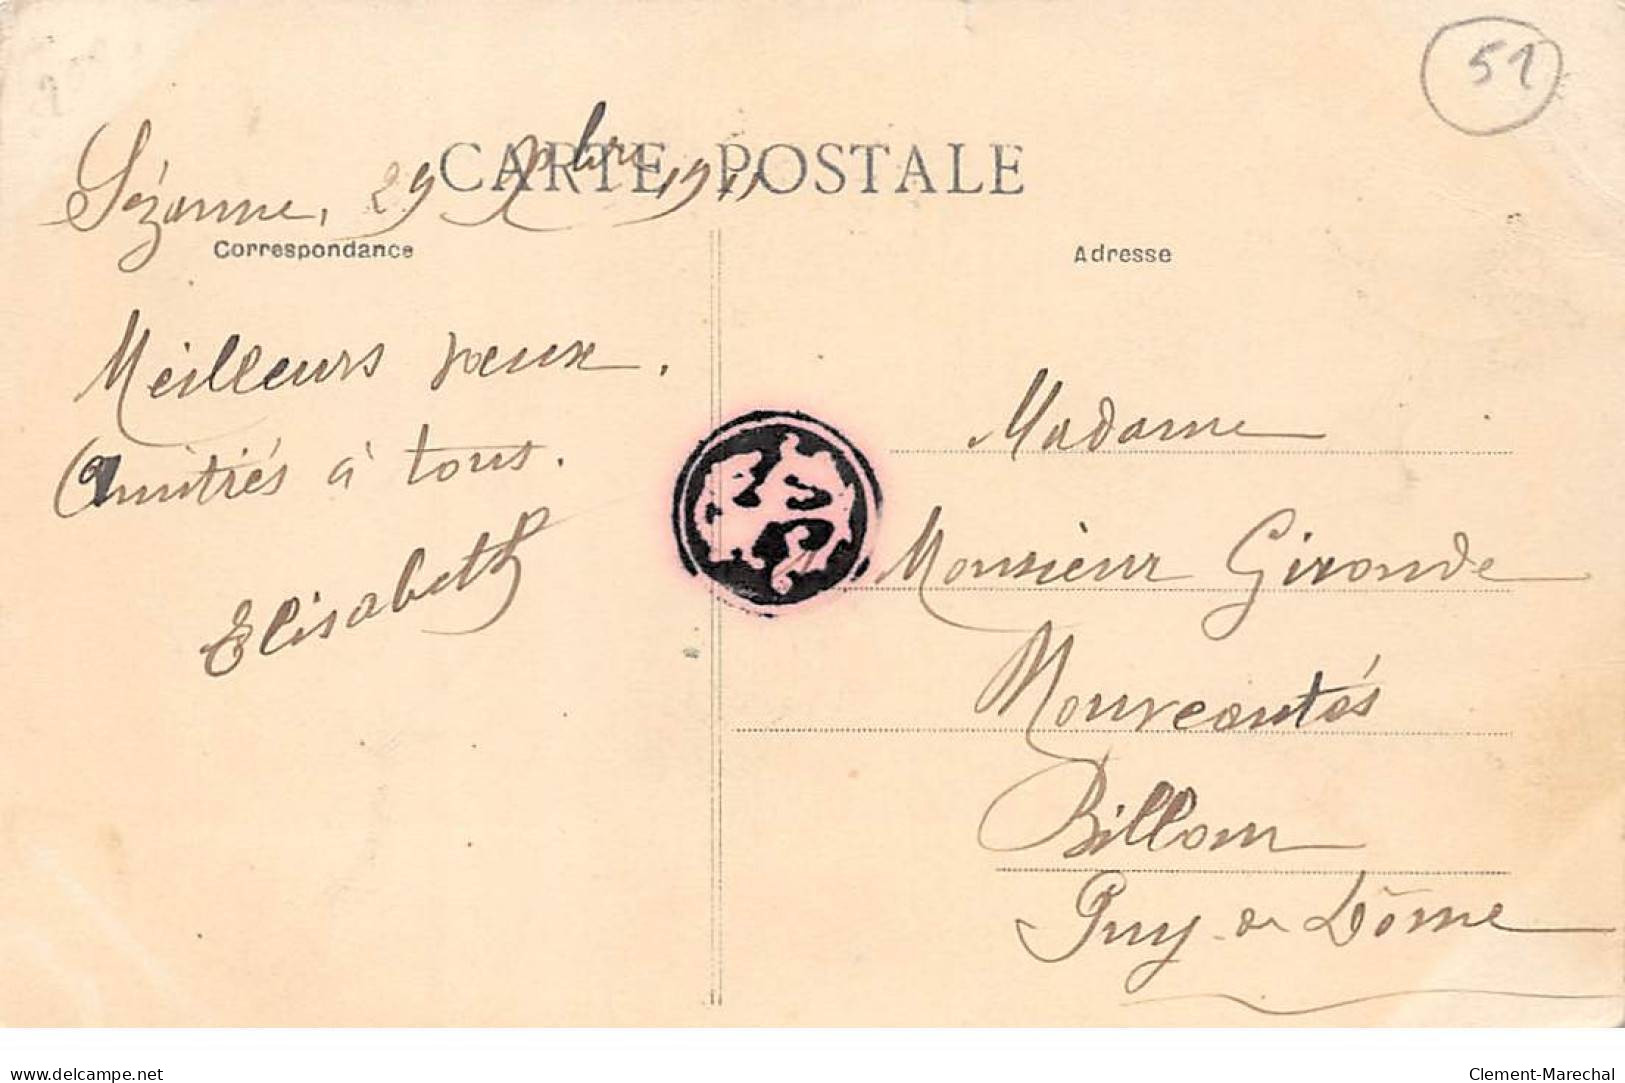 51
CARTE POSTALE
Sézanne, 29 Xbre 1911
Correspondance
Adresse
Meilleurs voeux.
Amitiés à tous.
Elisabeth
Madame
Monsieur Gironde
Nouveautés
Billom
Puy-de-Dôme
delcampe.net
Clement-Marechal